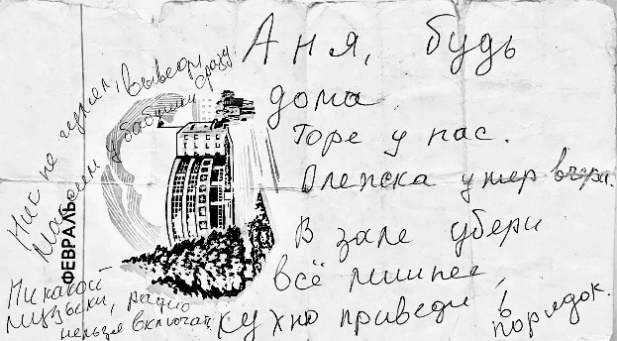 Аня, будь
дома.
Горе у нас.
Олежка умер вчера.
В зале убери
всё лишнее,
кухню приведи в
порядок.
Ник не гулял, выведи сразу.
Максим у бабушки
Никакой
музыки, радио
нельзя включать.
ФЕВРАЛЬ